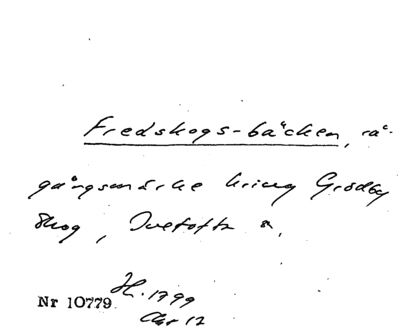 Fredskogs-bäcken, rå-
gångsmärke kring Grödby
skog, Ivetofta s.
Nr 10779. H. 1799
Akt 12